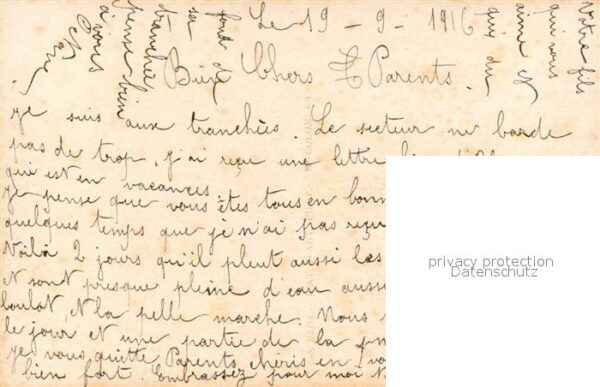 Le 19 - 9 - 1916
Bien Chers Parents.
Je suis aux tranchées. Le secteur ne barde
pas de trop, j'ai reçu une lettre
qui est en vacances.
Je pense que vous êtes tous en bonn
quelques temps que je n'ai pas reçu
Voilà 2 jours qu'il pleut aussi les
et sont presque pleine d'eau aussi
et la pelle marche. Nous
le jour et une partie de la
Je vous quitte Parents chéris en
bien fort. Embrassez pour moi
Votre fils
qui vous
aime et
qui du
fond de
sa
tranchée
pense bien
à vous
privacy protection
Datenschutz